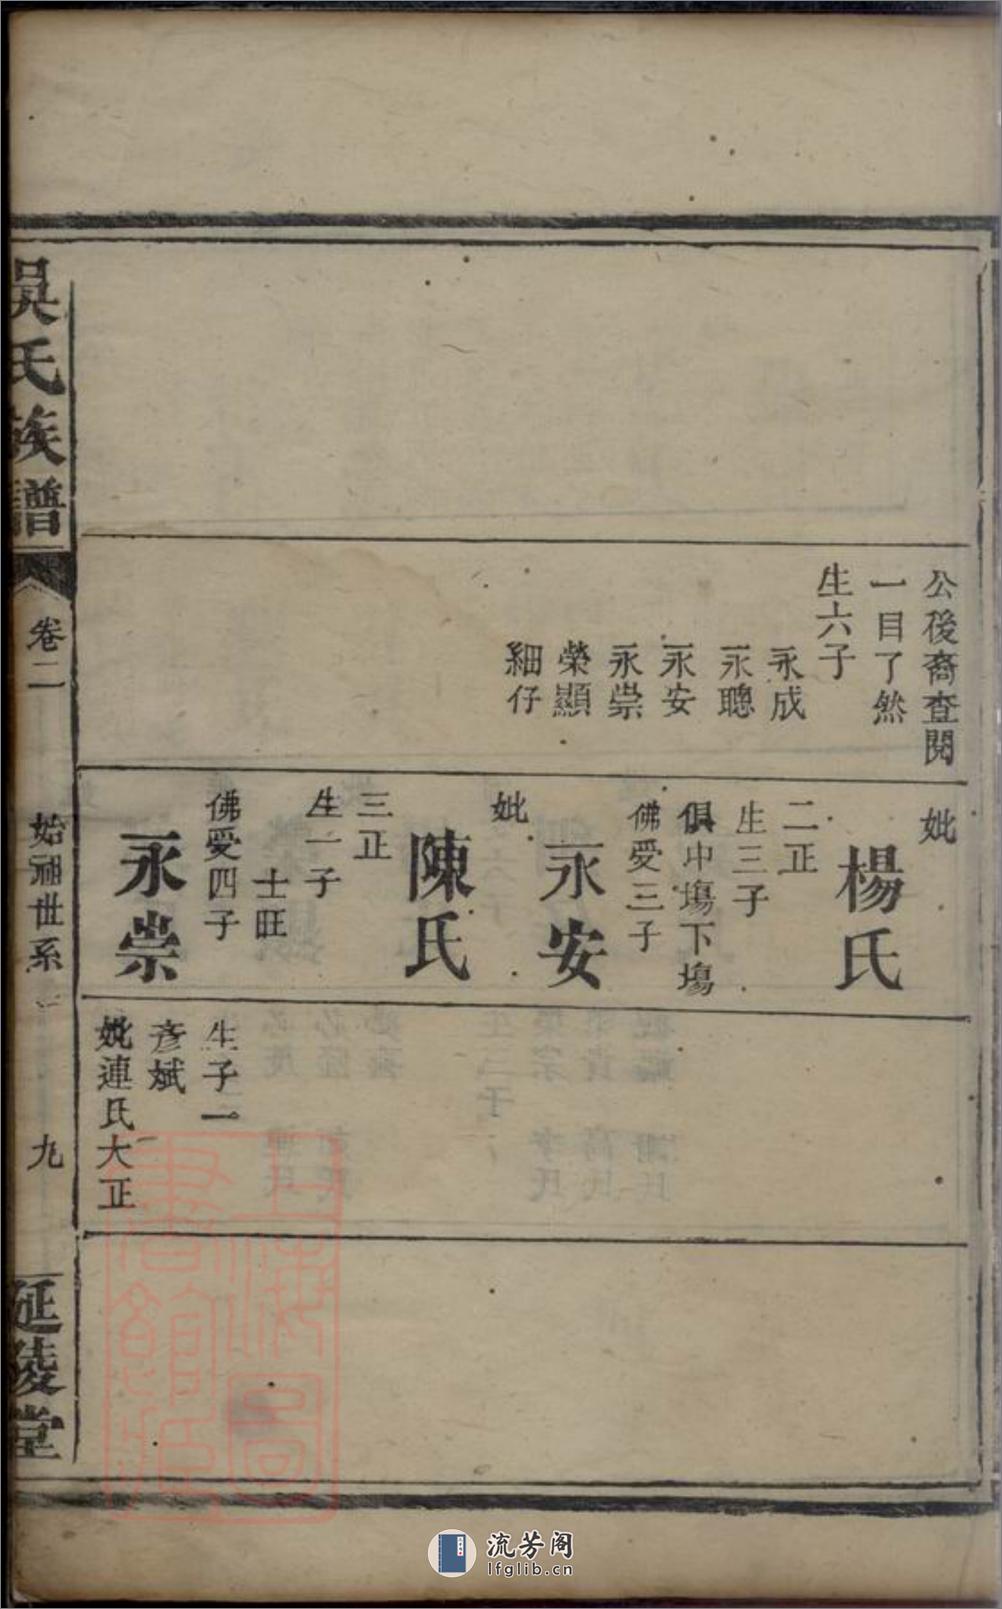 公後裔查閱
一目了然
生六子
永成
永聰
永安
永崇
榮顯
細仔
妣
楊氏
二正
生三子
俱中塲下塲
佛受三子
永安
妣
陳氏
三正
生一子
士旺
佛受四子
永崇
生子一
彥斌
妣連氏大正
吳氏族譜
卷二
始祖世系
九
延陵堂
上海圖書館藏
流芳阁
lfglib.cn